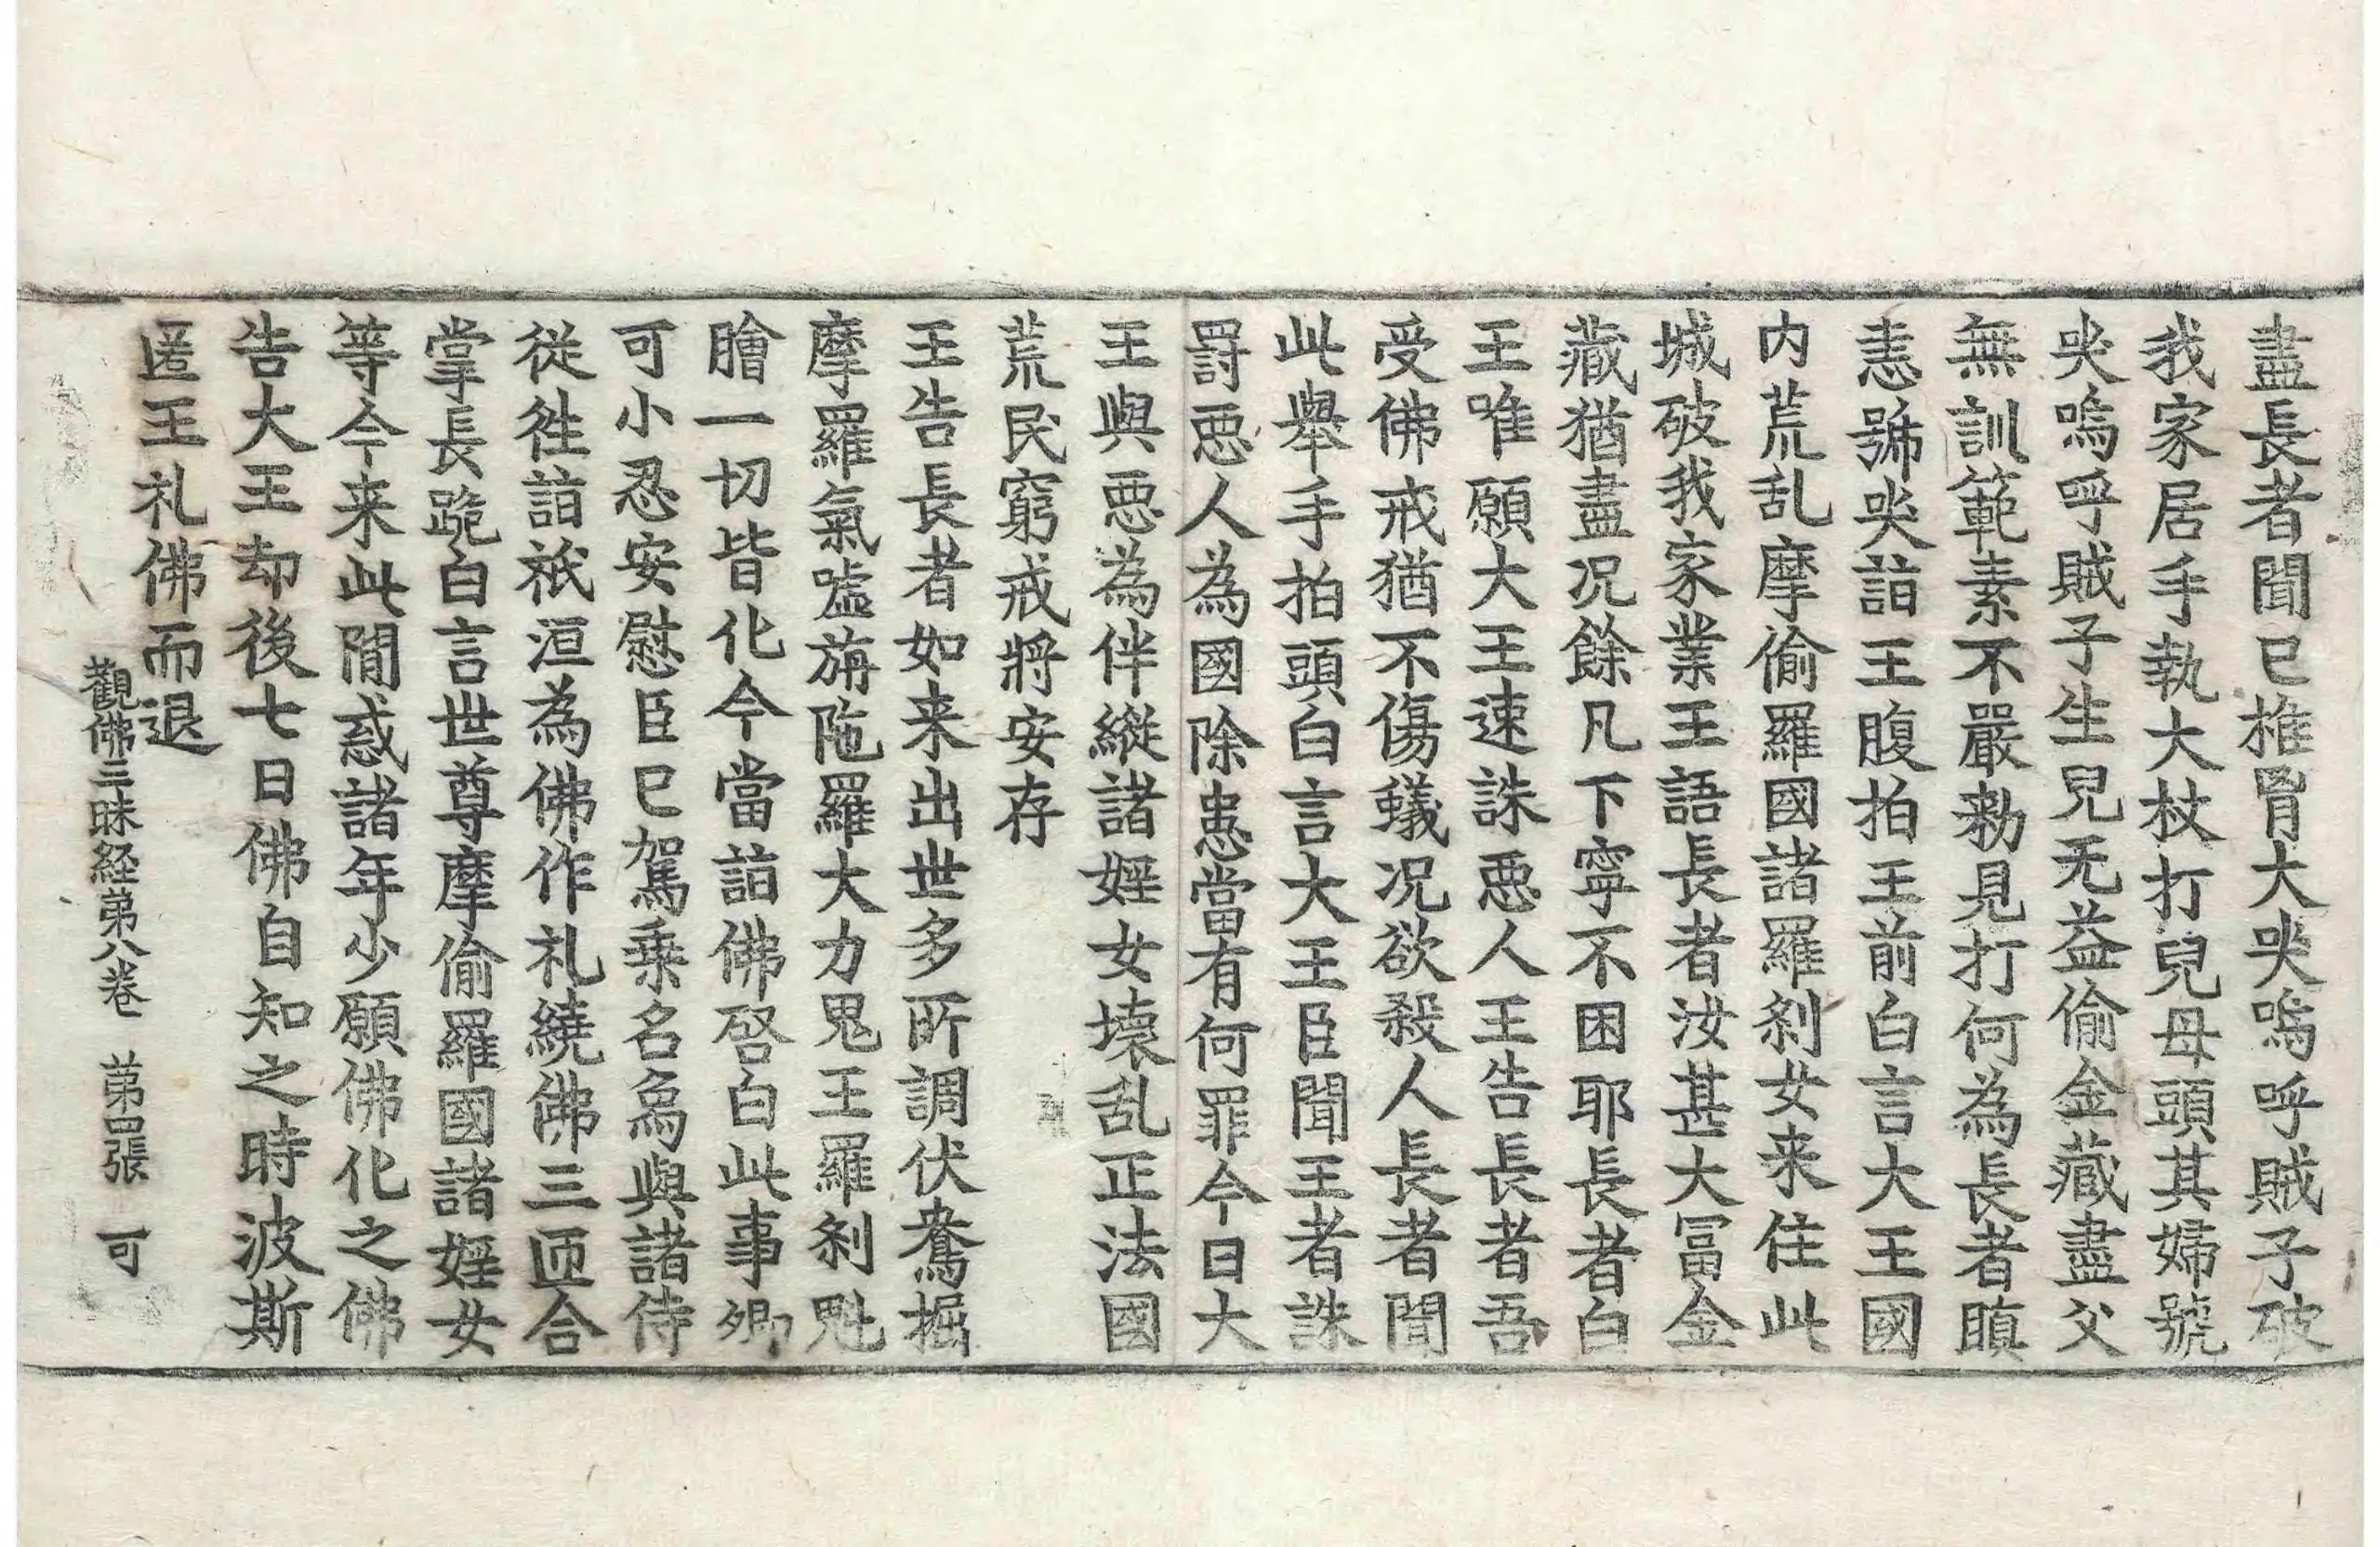 盡長者聞已搥胷大哭嗚呼賊子破
我家居手執大杖打兒母頭其婦號
哭嗚呼賊子生兒无益偷金藏盡父
無訓範素不嚴勑見打何為長者瞋
恚號哭詣王腹拍王前白言大王國
内荒乱摩偷羅國諸羅刹女来住此
城破我家業王語長者汝甚大冨金
藏猶盡况餘凡下寧不困耶長者白
王唯願大王速誅惡人王告長者吾
受佛戒猶不傷蟻况欲殺人長者聞
此舉手拍頭白言大王臣聞王者誅
罸惡人為國除患當有何罪今日大
王與惡為伴縱諸婬女壞乱正法國
荒民窮戒將安存
王告長者如来出世多所調伏鴦掘
摩羅氣嘘旃陁羅大力鬼王羅刹魁
膾一切皆化今當詣佛啓白此事卿
可小忍安慰臣已駕乗名為與諸侍
従徃詣祇洹為佛作礼繞佛三匝合
掌長跪白言世尊摩偷羅國諸婬女
等今来此間惑諸年少願佛化之佛
告大王却後七日佛自知之時波斯
匿王礼佛而退
觀佛三昧経第八卷　第四張　可